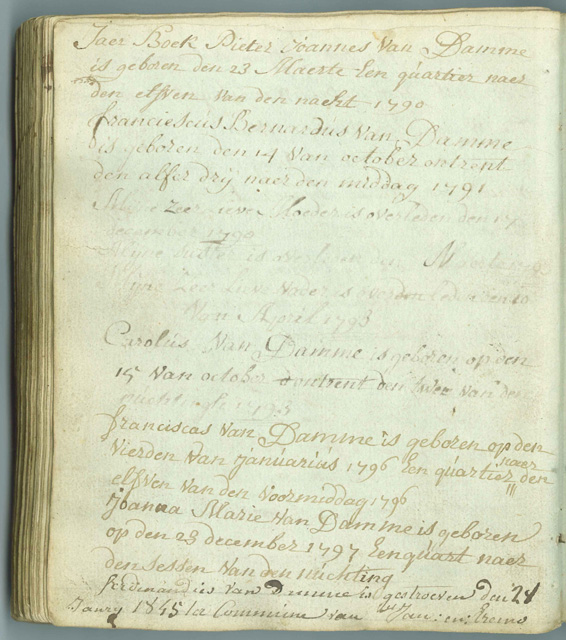 Jaer Boek Pieter Joannes Van Damme
is geboren den 23 Maerte Een quartier naer
den elfven van den nacht 1790
franciescus Bernardus Van Damme
is geboren den 14 Van october ontrent
den alfer drij naer den middag 1791
Mijne Zeer Lieve Moeder is overleden den 17
december 1790
Mijne suster is overleden den Maerte
Mijne Zeer Lieve Vader is den 10
Van April 1793
Carolus Van Damme is geboren op den
15 Van october ontrent den twee van den
1793
franciscus Van Damme is geboren op den
Vierden Van Januarius 1796 Een quartier naer den
elfven van den Voormiddag 1796
Joanna Marie Van Damme is geboren
op den 23 december 1797 Een quart naer
den sessen van den nuchting
ferdinandus Van Damme is gestroeven den 24
Janry 1845 la Commune van St Jan: in: Eremo